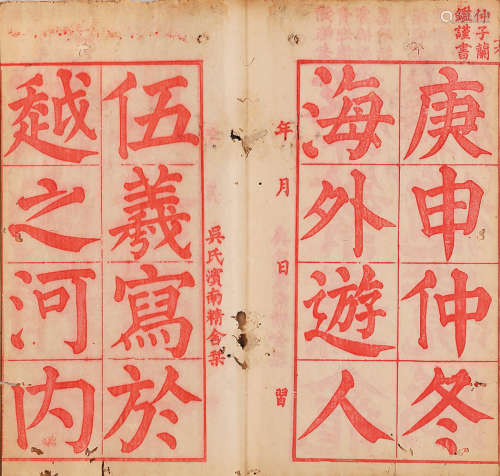 仲子蘭
鑑謹書
庚申仲冬
海外遊人
年月日習
吳氏濱南精舍栞
伍羲寫於
越之河内